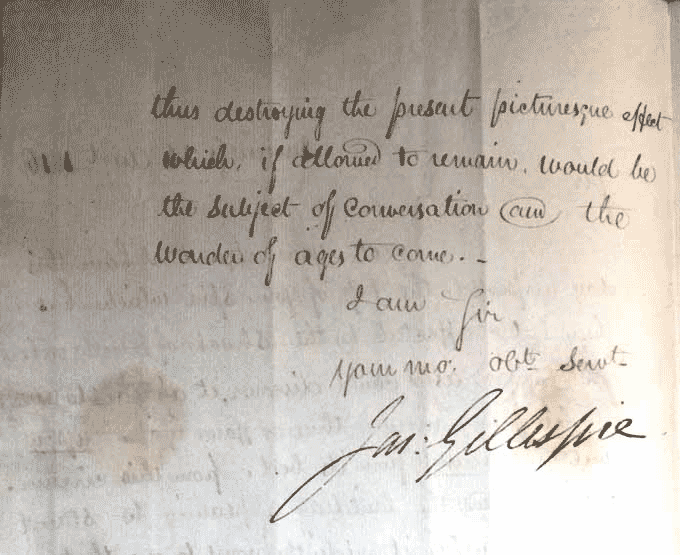 thus destroying the present picturesque effect
which, if allowed to remain, would be
the subject of conversation and the
wonder of ages to come. -
I am Sir
Your mo. obt. Servt.
Jas: Gillespie